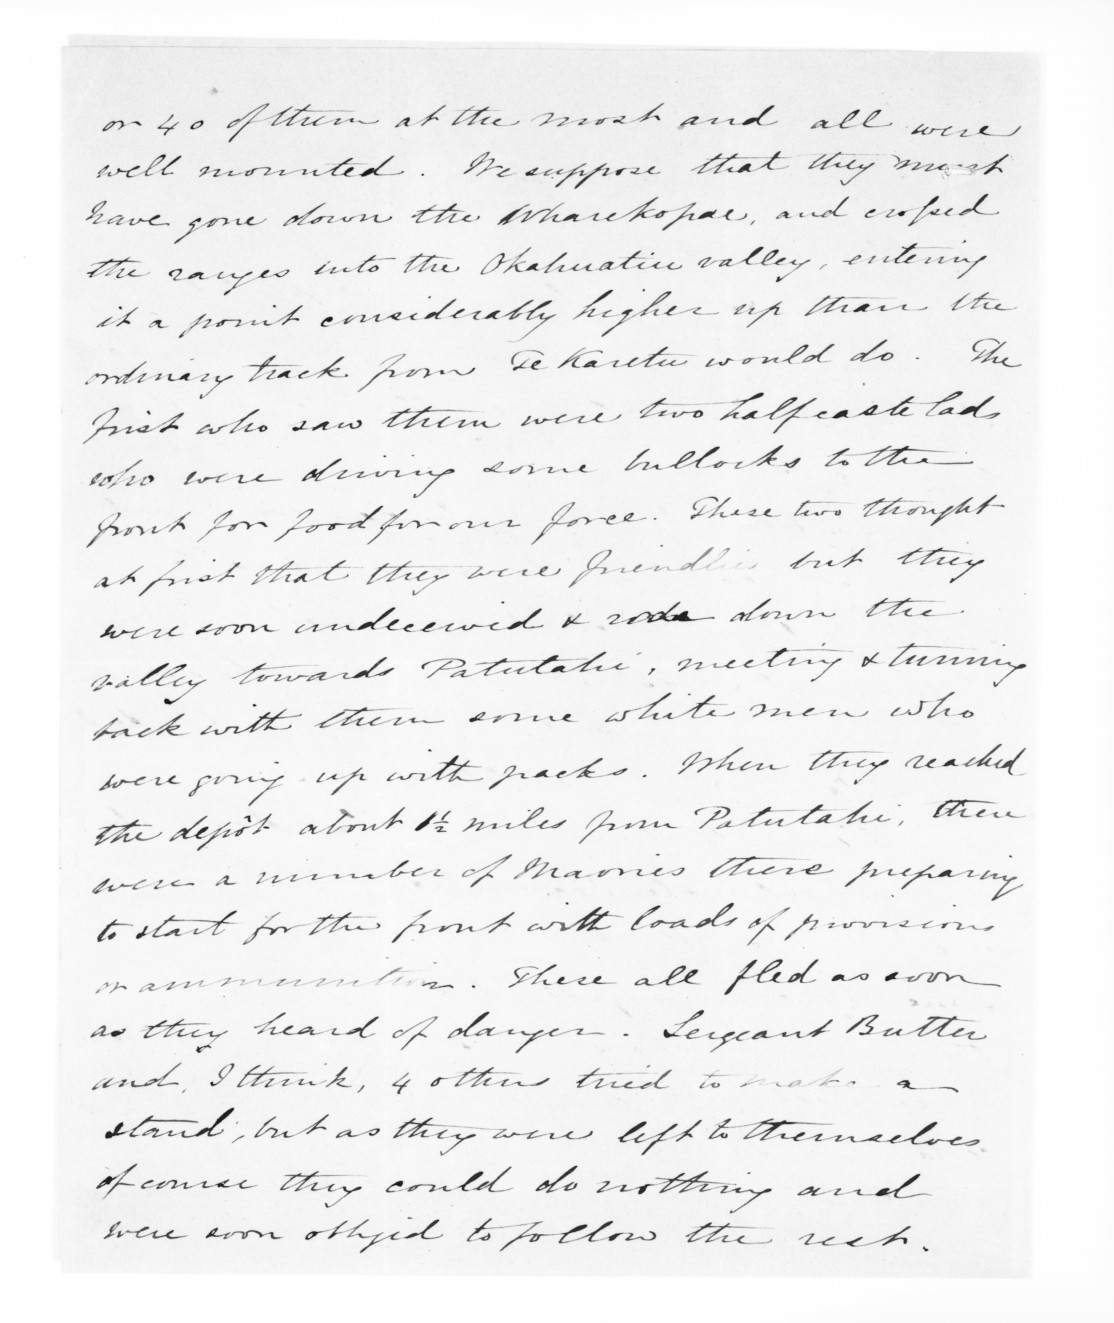 or 40 of them at the most and all were
well mounted. We suppose that they must
have gone down the Wharekopae, and crossed
the ranges into the Okahuatiu valley, entering
it a point considerably higher up than the
ordinary track from Te Karetu would do. The
first who saw them were two half caste lads
who were driving some bullocks to the
front for food for our force. These two thought
at first that they were friendlies but they
were soon undeceived & rode down the
valley towards Patutahi, meeting & turning
back with them some white men who
were going up with packs. When they reached
the depôt about 1½ miles from Patutahi, there
were a number of Maories there preparing
to start for the front with loads of provisions
or ammunition. These all fled as soon
as they heard of danger. Sergeant Butter
and, I think, 4 others tried to make a
stand, but as they were left to themselves
of course they could do nothing and
were soon obliged to follow the rest.